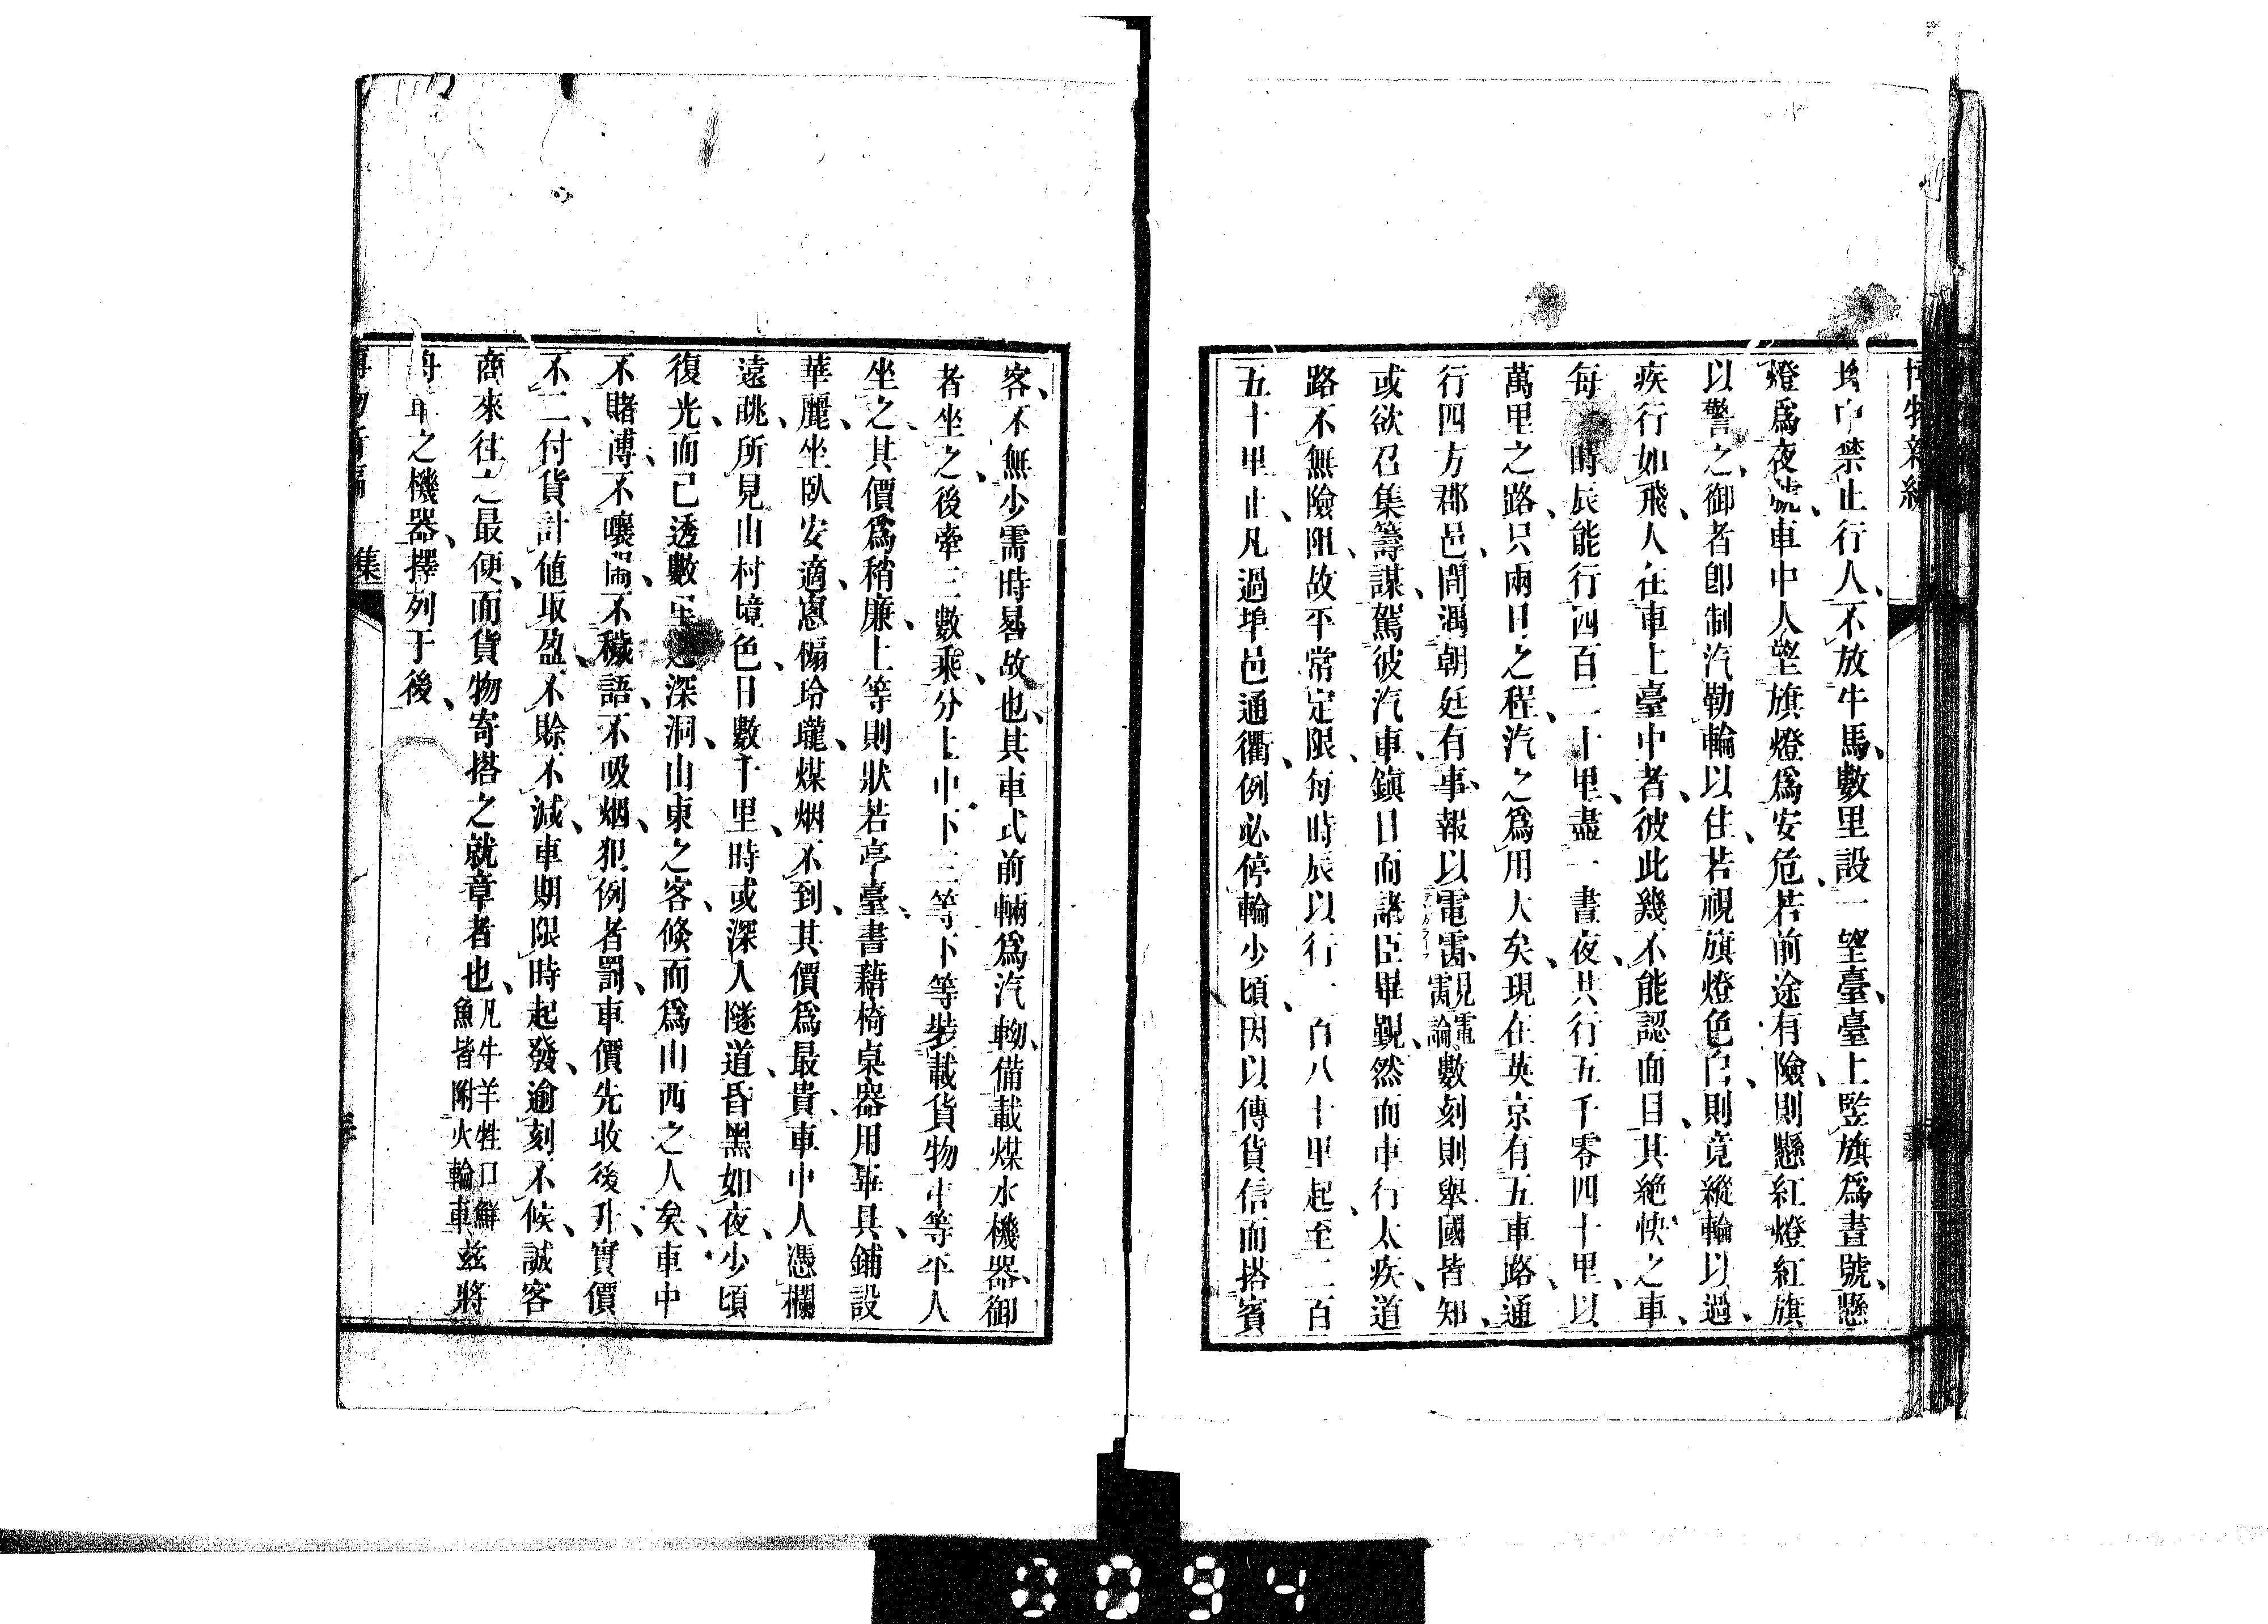 博物新編
中禁止行人、不放牛馬、數里設一望臺、臺上竪旗爲晝號、懸
燈爲夜號、車中人望旗燈爲安危、若前途有險、則懸紅燈紅旗
以警之、御者卽制汽勒輪以住、若視旗燈色白、則竟縱輪以過、
疾行如飛、人在車上臺中者、彼此幾不能認面目、其絶快之車、
每時辰能行四百二十里、盡一晝夜、共行五千零四十里、以
萬里之路、只兩日之程、汽之爲用大矣、現在英京有五車路、通
行四方郡邑、間遇朝廷有事、報以電雷、見電雷論、數刻則舉國皆知、
或欲召集籌謀、駕彼汽車、鎮日而諸臣畢覲、然而車行太疾、道
路不無險阻、故平常定限、每時辰以行一百八十里起、至二百
五十里止、凡過埠邑通衢、例必停輪少頃、因以傳貨信而搭賓
客、不無少需時晷故也、其車式前輛爲汽軪、備載煤水機器、御
者坐之、後牽三數乘、分上中下三等、下等裝載貨物、中等平人
坐之、其價爲稍廉、上等則狀若亭臺、書藉椅桌器用畢具、鋪設
華麗、坐臥安適、窻槅玲瓏、煤烟不到、其價爲最貴、車中人憑欄
遠眺、所見山村境色、日數千里、時或深入隧道、昏黑如夜、少頃
復光、而已透數里之深洞、山東之客、倐而爲山西之人矣、車中
不賭溥、不嚷閙、不穢語、不吸烟、犯例者罰、車價先收後升、實價
不二、付貨計値取盈、不賒不減、車期限時起發、逾刻不候、誠客
商來往之最便、而貨物寄搭之就章者也、凡牛羊牲口鮮魚皆附火輪車、茲將
舟車之機器、擇列于後、
博物新編 一集
0094